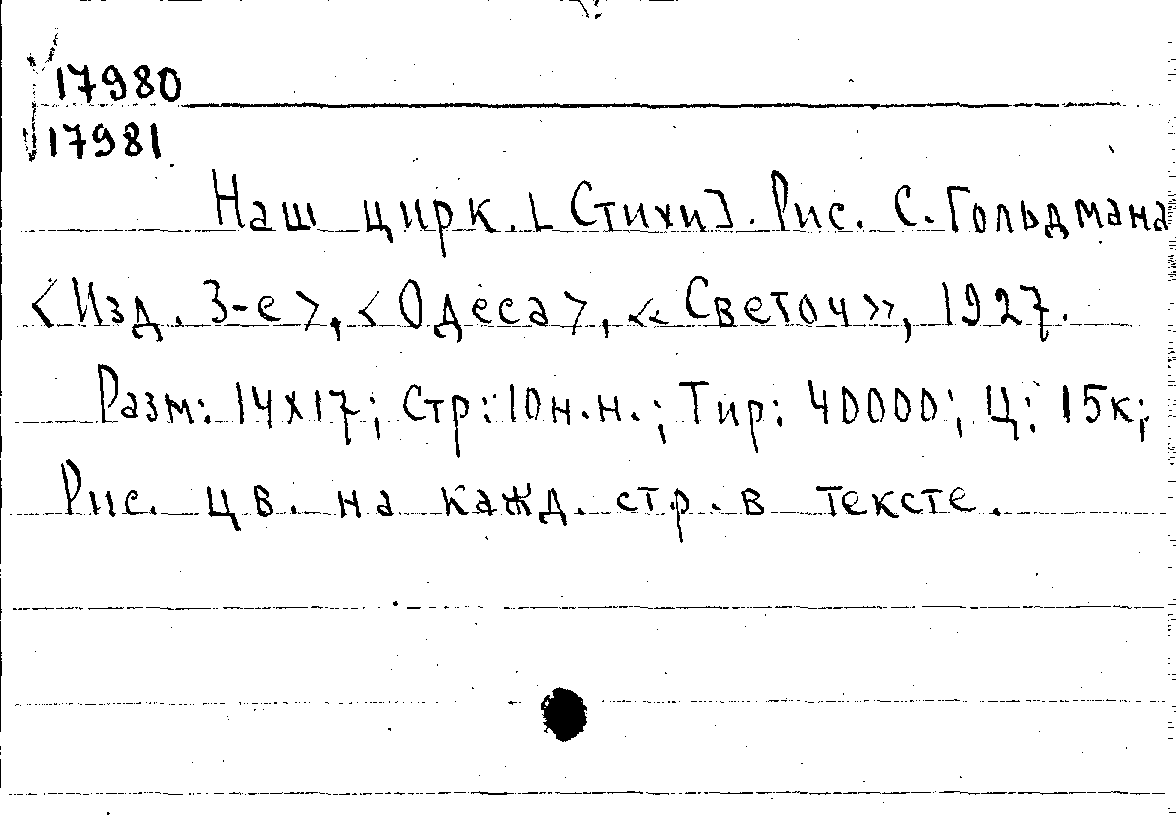 17980
17981
Наш цирк. [Стихи]. Рис. С. Гольдмана
<Изд. 3-е>, <Одеса>, «Светоч», 1927.
Разм: 14х17; Стр: 10н.н.; Тир: 40000; Ц: 15к;
Рис. цв. на кажд. стр. в тексте.